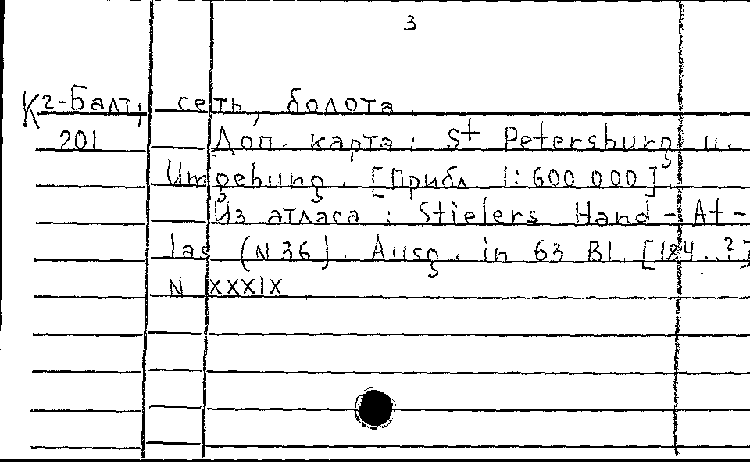 3
К2-Балт, сеть, болота.
201 Доп. карта: St Petersburg u.
Umgebung. [Прибл 1:600 000].
Из атласа: Stielers Hand-At-
las (N 36). Ausg. in 63 Bl. [184.?]
N XXXIX